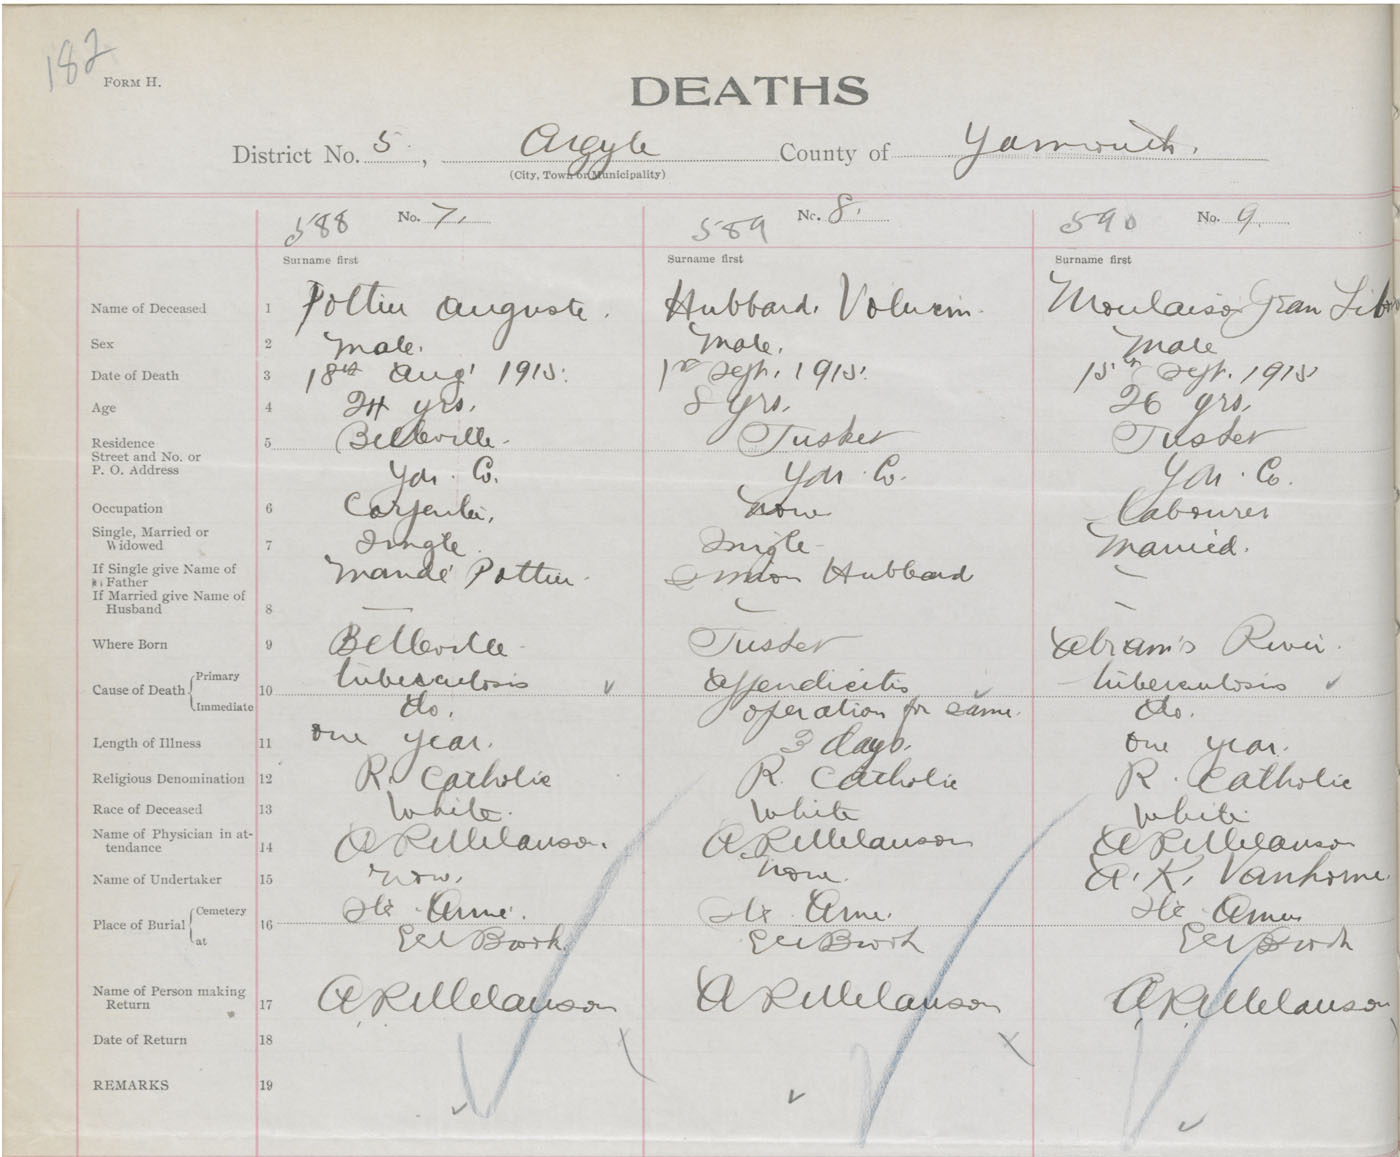 182
FORM H.
DEATHS
District No. 5, Argyle County of Yarmouth.
(City, Town or Municipality)
588 No. 7. 589 No. 8. 590 No. 9.
Surname first Surname first Surname first
Name of Deceased 1 Pottier Auguste. Hubbard, Moulaison Jean
Sex 2 Male. Male. Male
Date of Death 3 18th Aug' 1915. 1st Sept. 1915. 15th Sept. 1915
Age 4 24 yrs. 8 yrs. 26 yrs.
Residence 5 Belleville. Tusket Tusket
Street and No. or
P. O. Address Yar. Co. Yar. Co. Yar. Co.
Occupation 6 Carpenter. None Labourer
Single, Married or
Widowed 7 Single Single Married.
If Single give Name of
Father Mandé Pottier. Simon Hubbard —
If Married give Name of
Husband 8 — — —
Where Born 9 Belleville Tusket Abram's River.
Cause of Death Primary 10 tuberculosis ✓ appendicitis ✓ tuberculosis ✓
Immediate do. operation for same. do.
Length of Illness 11 one year. 3 days. one year.
Religious Denomination 12 R. Catholic R. Catholic R. Catholic
Race of Deceased 13 White. White White
Name of Physician in at-
tendance 14 A R Melanson. A R Melanson A R Melanson
Name of Undertaker 15 None. None. A. K. Vanhorne.
Place of Burial Cemetery 16 Ste Anne. Ste Anne. Ste Anne
at Eel Brook. Eel Brook Eel Brook
Name of Person making
Return 17 A R Melanson A R Melanson A R Melanson
Date of Return 18
REMARKS 19